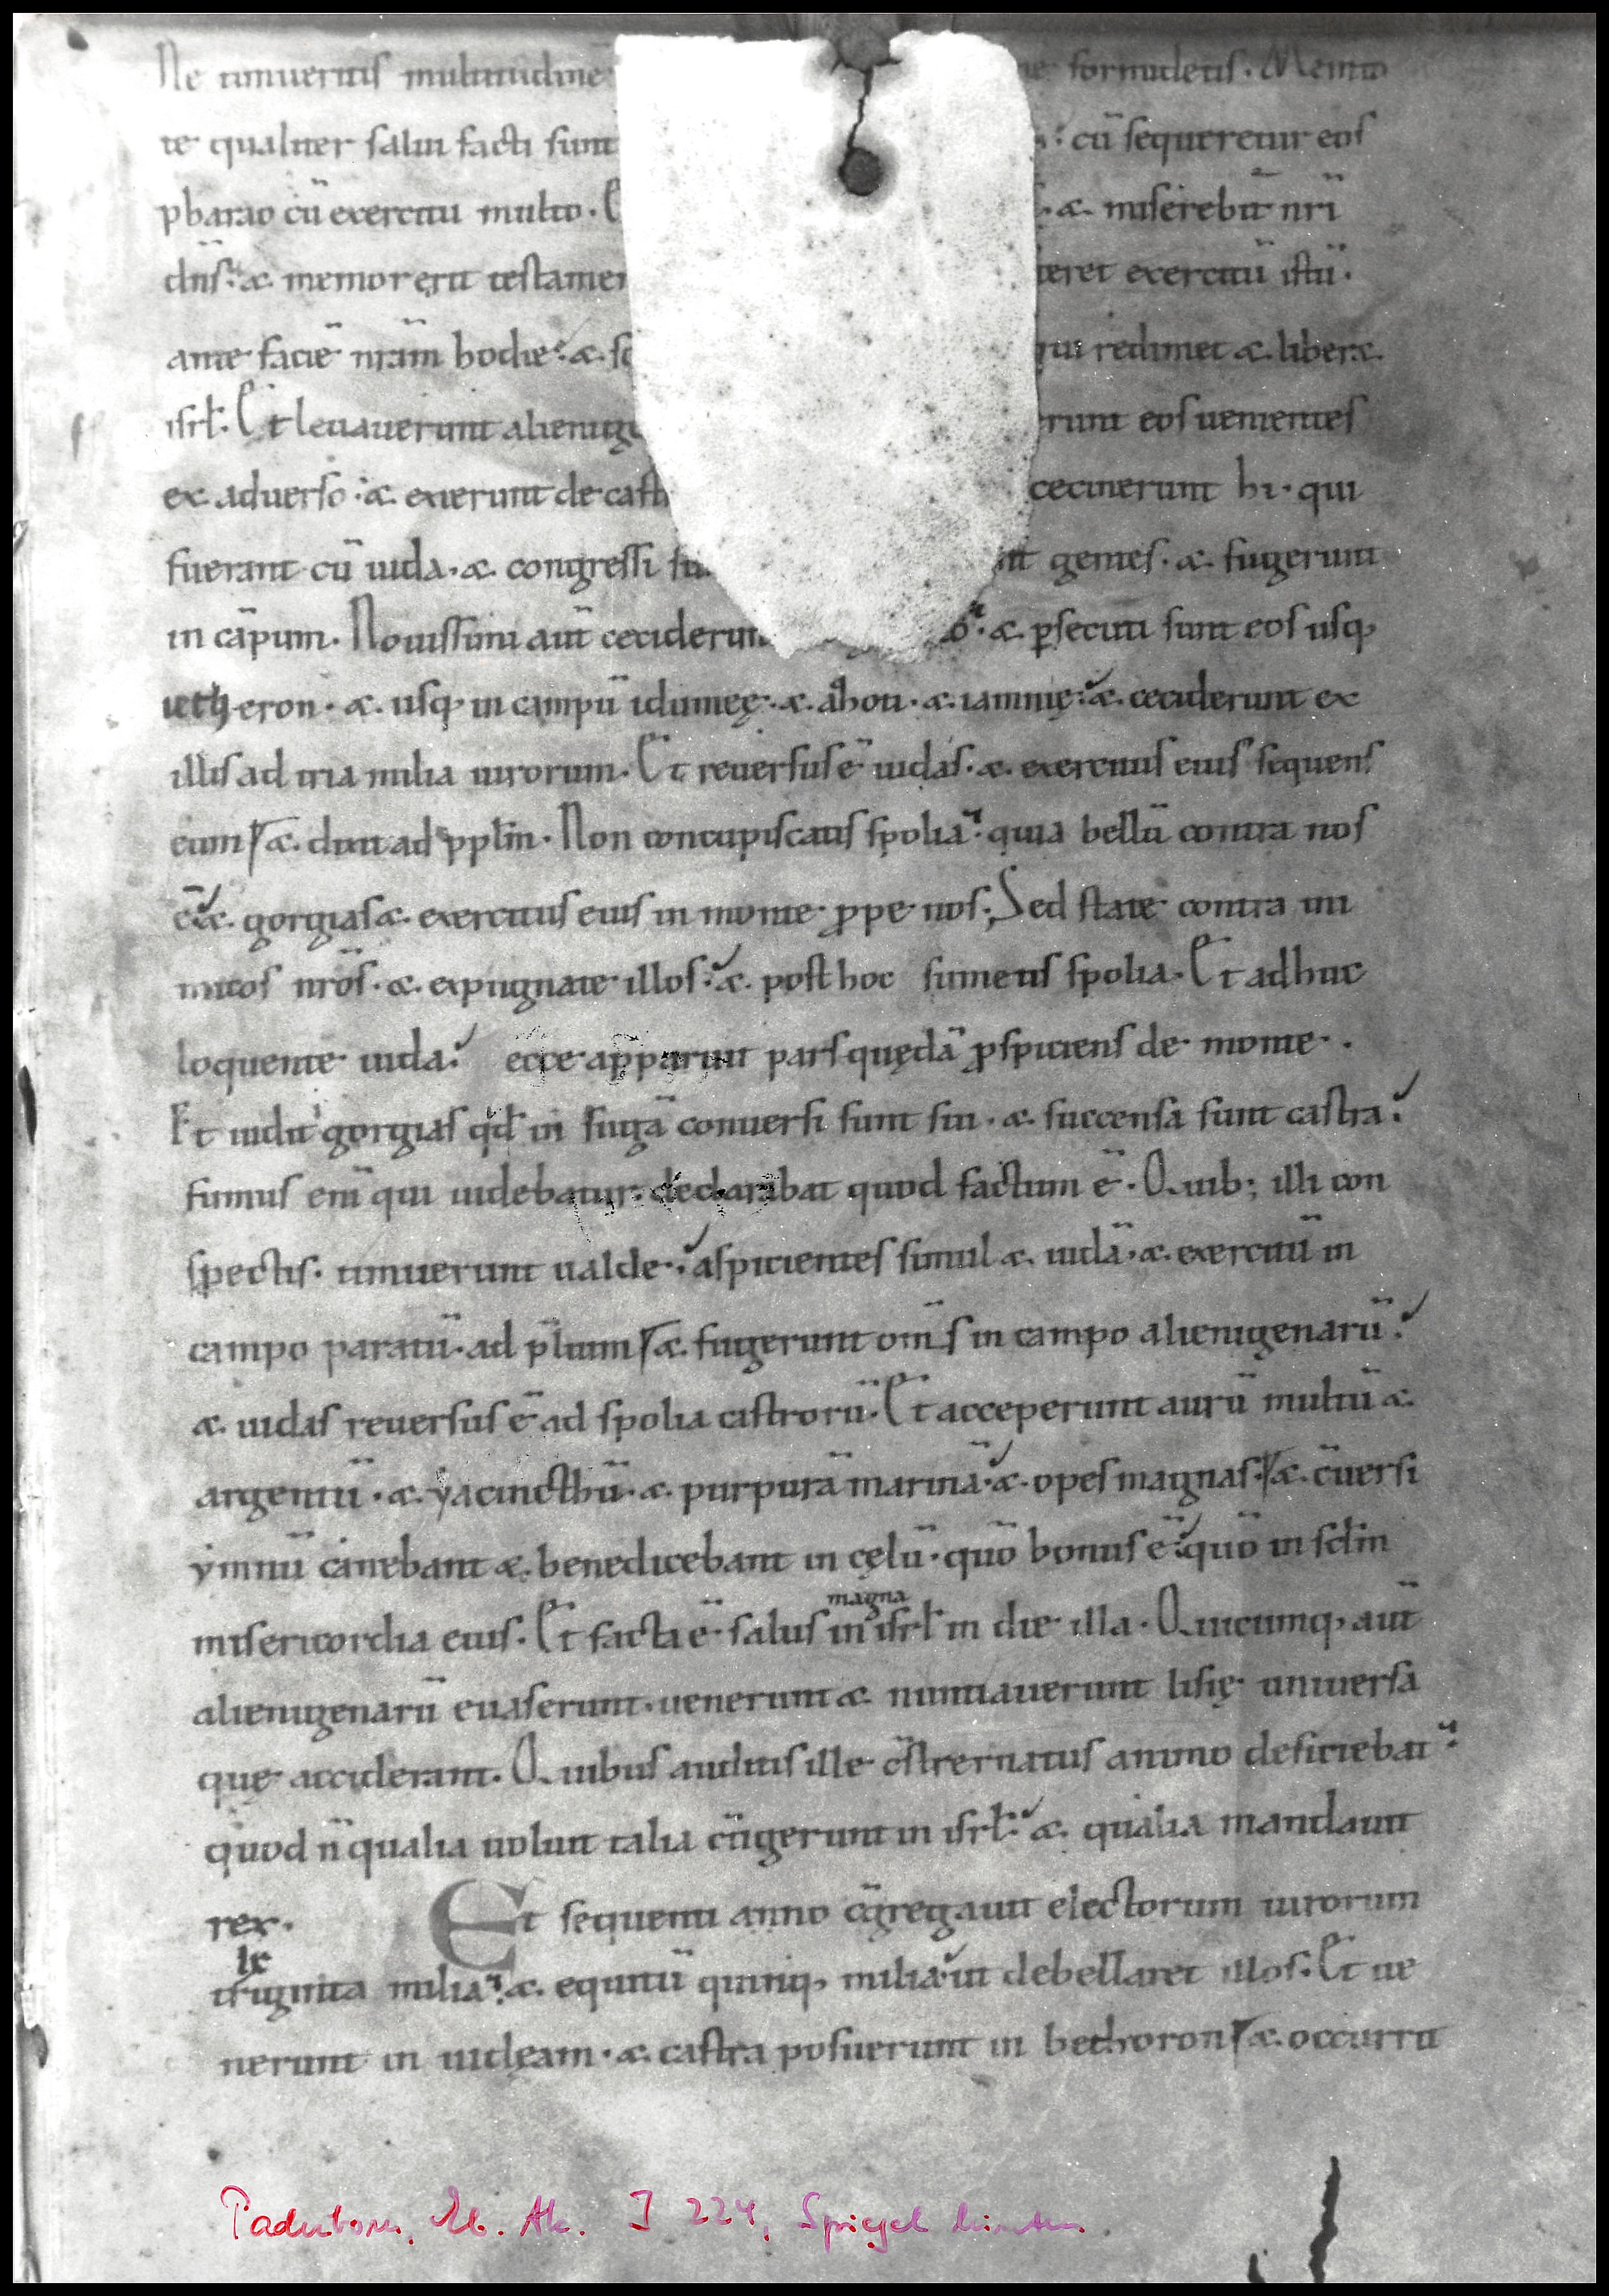 Ne timueritis multitudinē formidetis. Memto
te qualiter salui facti sunt : cū sequeretur eos
pharao cū exercitu multo. & miserebit̄ nr̄i
dn̄s: & memor erit & exercitū istū.
ante faciē nrām hodie: & redimet & liberæ
isrl̄. Et leuauerunt eos uenientes
ex aduerso: & exierunt de cecinerunt hi. qui
fuerant cū iuda. & congressi gentes. & fugerunt
in cāpum. Nouissimi aūt & ꝑsecuti sunt eos usq;
ietheron. & usq; in campū idumeę. & iamnię: & ceciderunt ex
illis ad tria milia uirorum. Et reuersus ē iudas. & exercitus eius sequens
eum / & dixit ad ppl̄m. Non concupiscatis spolia: quia bellū contra nos
ē: & gorgias & exercitus eius in monte ꝓpe nos; Sed state contra ini
micos nrōs. & expugnate illos: & post hoc sumetis spolia. Et adhuc
loquente iuda: ecce apparuit pars quędā ꝓspiciens de monte.
Et uidit gorgias qd̄ in fugā conuersi sunt sui. & succensa sunt castra:
fumus enī qui uidebatur. declarabat quod factum ē. Quib; illi con
spectis. timuerunt ualde: aspicientes simul & iudā. & exercitū in
campo paratū. ad p̄lium / & fugerunt om̄s in campo alienigenarū:
& iudas reuersus ē ad spolia castrorū. Et acceperunt aurū multū &
argentū. & yacincthū. & purpurā marinā: & opes magnas. / & c̄uersi
ymnū canebant & benedicebant in cęlū. quō bonus ē: quō in scl̄m
misericordia eius. Et facta ē salus magna in isrl̄ in die illa. Quicumq; aūt
alienigenarū euaserunt. uenerunt & nuntiauerunt lisię uniuersa
quę acciderant. Quibus auditis ille c̄strernatus animo deficiebat:
quod n̄ qualia uoluit talia c̄tigerunt in isrl̄: & qualia mandauit
rex. Et sequenti anno c̄gregauit electorum uirorum
le
triginta milia: & equitū quinq; milia: ut debellaret illos. Et ue
nerunt in iudęam. & castra posuerunt in bethoron / & occurrit
Paderborn, Eb. Ak. I 224, Spiegel hinten